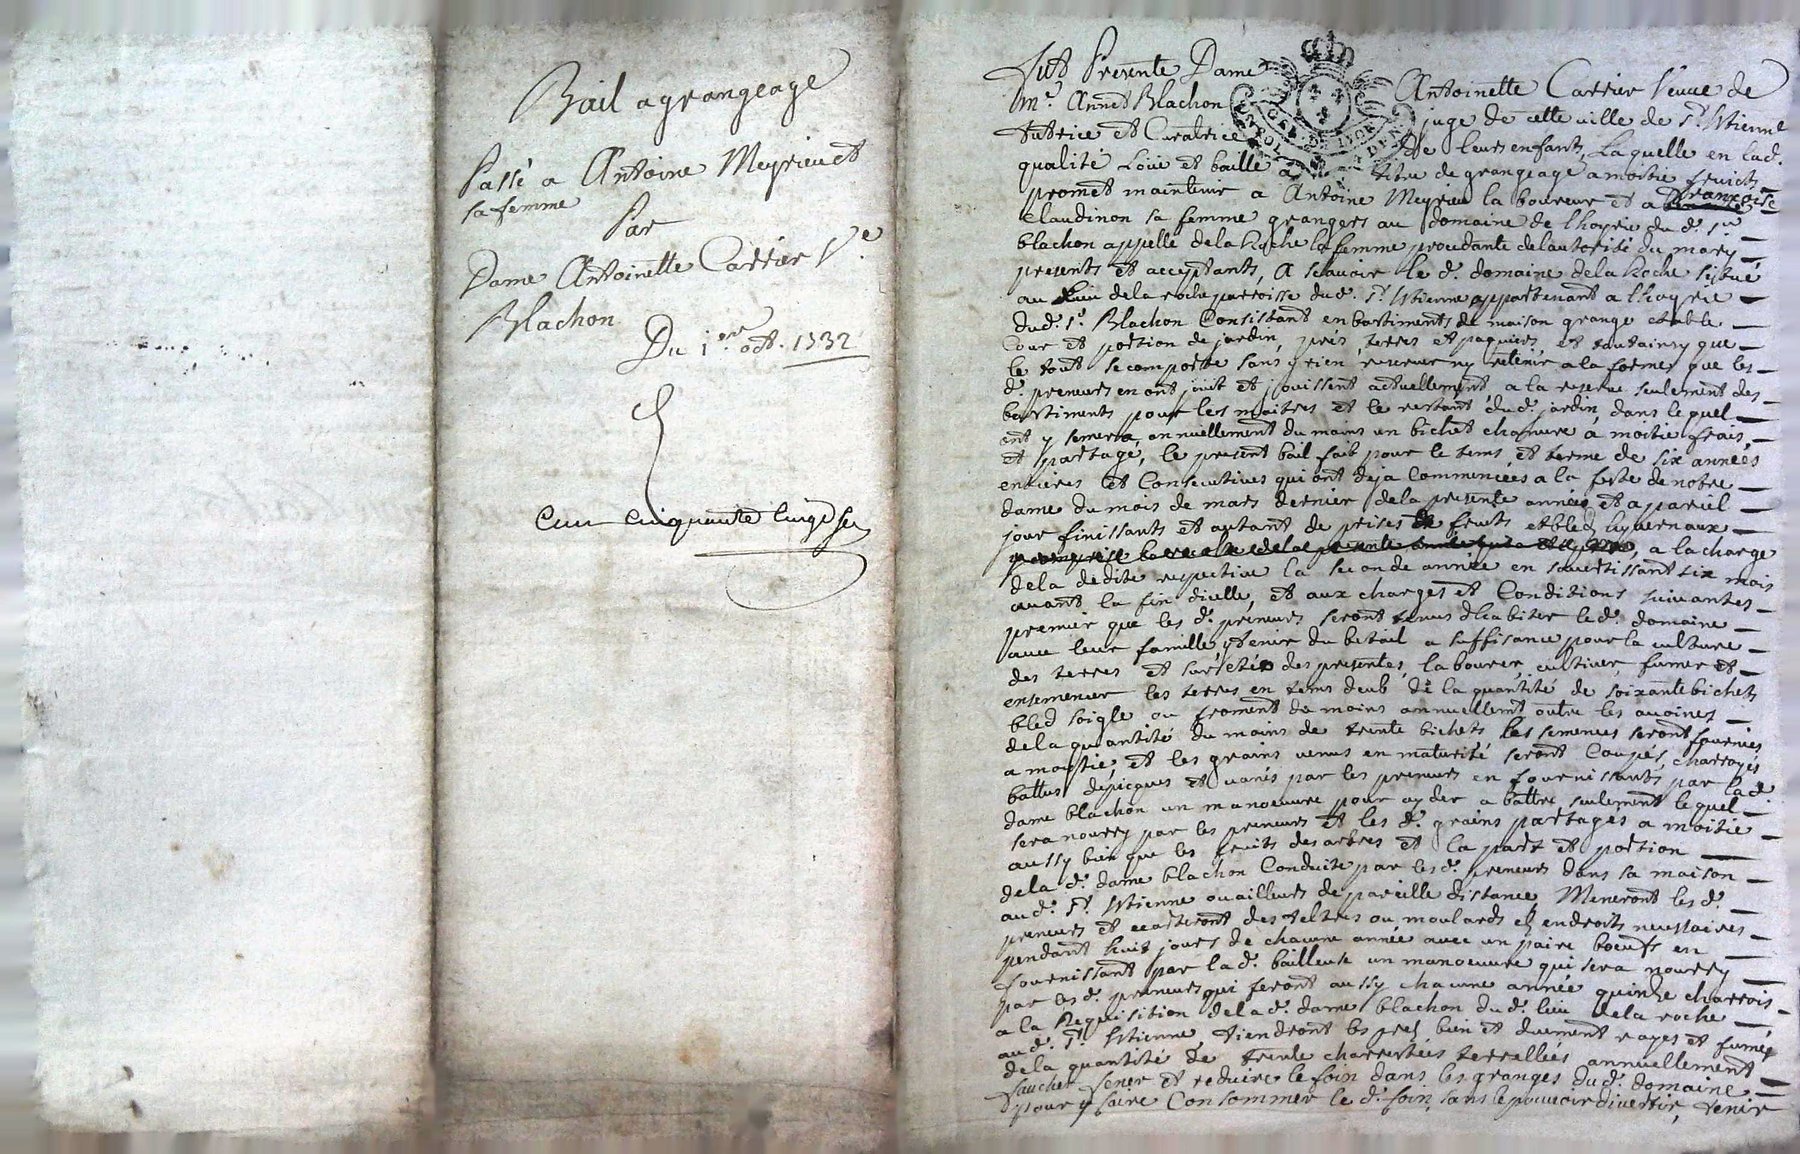 Bail a grangeage
Passé a Antoine Meyrieu et
sa femme
Par
Dame Antoinette Carrier Ve
Blachon
Du 1er oct. 1732
Cent Cinquante
Fut Presente Dame Antoinette Carrier veuve de
Mr. Annet Blachon juge de cette ville de St. Estienne
tutrice et Curatrice de leurs enfants, Laquelle en lad.
qualité Loüe et baille a titre de grangeage a moitié fruicts
promet maintenir a Antoine Meyrieu laboureur et a françoise
Claudinon sa femme grangers au domaine de lhoyrie dud. sr.
blachon appellé dela Roche la femme procedante de lautorité du mary
presents et acceptants, A scavoir le d. domaine dela Roche situé
au lieu dela roche parroisse dud. St. Estienne appartenant a lhoyrie
dud. sr. Blachon Consistant en bastiments de maison grange estable
Cour et portion de jardin, prés, terres et paquiers, et tout ainsy que
le tout se comporte sans y rien reserver ny retenir a la forme que les
d. preneurs en ont joüit et joüissent actuellement, a la reserve seulement des
bastiments pour les maitres et le restant dud. jardin, dans lequel
ont y semera annuellement du moins un bichet chanvre a moitié frais
et partage, le present bail fait pour le tems et terme de six années
entieres et Consecutives qui ont deja Commencées a la feste de notre
dame du mois de mars dernier dela presente année et a pareil
jour finissants et autant de prises de fruits et bleds hyvernaux
a la charge
dela dedite respective la seconde année en s'avertissant six mois
avant la fin dicelle, et aux charges et Conditions suivantes
premier que les d. preneurs seront tenus d'habiter le d. domaine
avec leur famille, y tenir du betail a suffisance pour la culture
des terres et sureté des presentes, labourer, cultiver, fumer et
ensemencer les terres en tems deub, de la quantité de soixante bichets
bled soigle ou froment du moins annuellement outre les avoines
dela quantité du moins de trente bichets les semences seront fournies
a moytié, et les grains venus en maturité seront Coupés, charroyés
battus depicqués et vanés par les preneurs en fournissants par lad.
dame blachon un manoeuvre pour ayder a battre seulement lequel
sera nourry par les preneurs et les d. grains partagés a moitié
aussy bien que les fruits des arbres et la part et portion
dela d. dame blachon Conduite par les d. preneurs dans sa maison
aud. St. Estienne ou ailleurs de pareille distance, Meneront les d.
preneurs et ecarteront des teltres ou moulards es endroits necessaires
pendant huit jours de chacune année avec un paire boeufs en
fournissant par la d. bailleuse un manoeuvre qui sera nourry
par les d. preneurs qui feront aussy chacune année quinze charrois
a la Requisition dela d. dame blachon du d. lieu dela roche
aud. St. Estienne, tiendront les prés bien et duement rayés et fumés
dela quantité de trente charrettées terrallées annuellement
faucher fener et reduire le foin dans les granges du d. domaine
pour y faire Consommer le d. foin, sans le pouvoir divertir, tenir